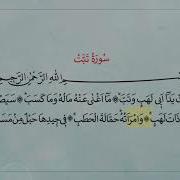 سُورَةُ تَبَّتْ
اللهِ الرَّحْمٰنِ الرَّحِيمِ
يَدَا أَبِي لَهَبٍ وَتَبَّ ۞ مَا أَغْنَى عَنْهُ مَالُهُ وَمَا كَسَبَ ۞ سَيَصْ
ذَاتَ لَهَبٍ ۞ وَامْرَأَتُهُ حَمَّالَةَ الْحَطَبِ ۞ فِي جِيدِهَا حَبْلٌ مِنْ مَسَ